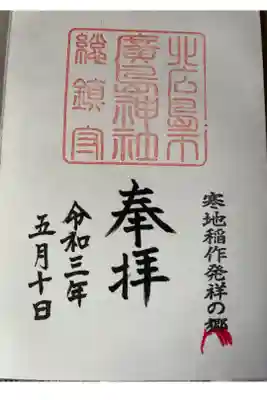 北広島市
廣島神社
総鎮守
寒地稲作発祥の郷
奉拝
令和三年
五月十日